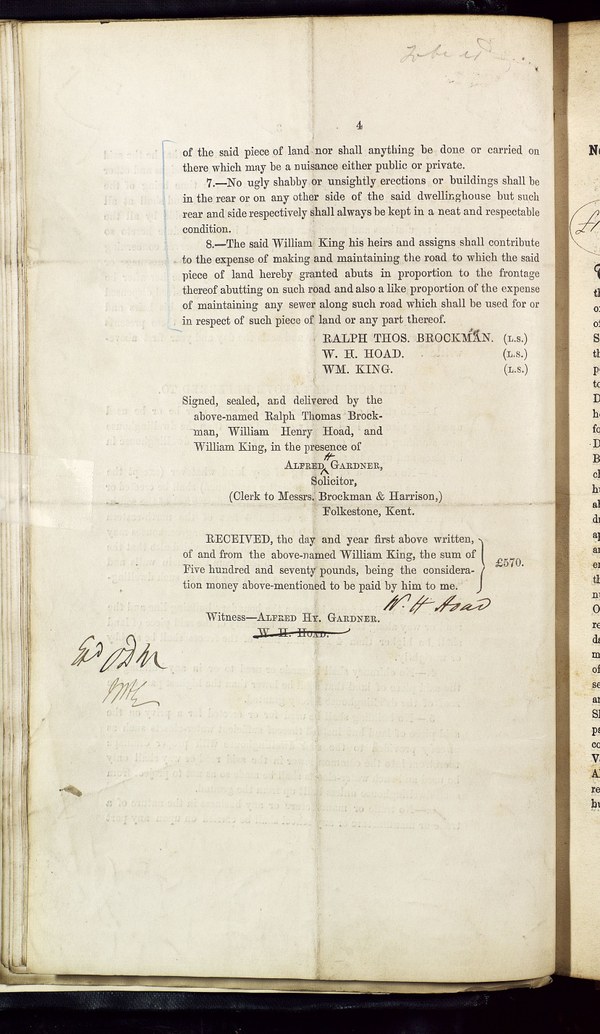 4
of the said piece of land nor shall anything be done or carried on
there which may be a nuisance either public or private.
7.—No ugly shabby or unsightly erections or buildings shall be
in the rear or on any other side of the said dwellinghouse but such
rear and side respectively shall always be kept in a neat and respectable
condition.
8.—The said William King his heirs and assigns shall contribute
to the expense of making and maintaining the road to which the said
piece of land hereby granted abuts in proportion to the frontage
thereof abutting on such road and also a like proportion of the expense
of maintaining any sewer along such road which shall be used for or
in respect of such piece of land or any part thereof.
RALPH THOS. BROCKMAN. (L.S.)
W. H. HOAD. (L.S.)
WM. KING. (L.S.)
Signed, sealed, and delivered by the
above-named Ralph Thomas Brock-
man, William Henry Hoad, and
William King, in the presence of
H
ALFRED GARDNER,
Solicitor,
(Clerk to Messrs. Brockman & Harrison,)
Folkestone, Kent.
RECEIVED, the day and year first above written,
of and from the above-named William King, the sum of
Five hundred and seventy pounds, being the considera-
tion money above-mentioned to be paid by him to me.
£570.
W. H Hoad
Witness—ALFRED HY. GARDNER.
W. H. HOAD.